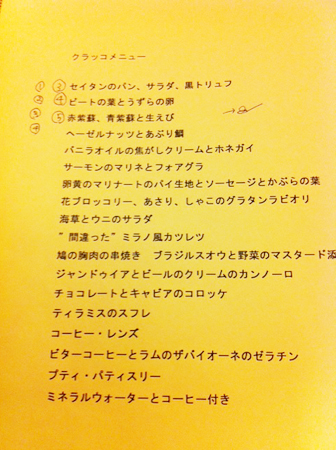 クラッコメニュー
① ③ セイタンのパン、サラダ、黒トリュフ
② ④ ビートの葉とうずらの卵
③ ⑤ 赤紫蘇、青紫蘇と生えび
④ ヘーゼルナッツとあぶり鯛
バニラオイルの焦がしクリームとホネガイ
サーモンのマリネとフォアグラ
卵黄のマリナートのパイ生地とソーセージとかぶらの葉
花ブロッコリー、あさり、しゃこのグラタンラビオリ
海草とウニのサラダ
“間違った”ミラノ風カツレツ
鳩の胸肉の串焼き ブラジルスオウと野菜のマスタード添
ジャンドゥイアとビールのクリームのカンノーロ
チョコレートとキャビアのコロッケ
ティラミスのスフレ
コーヒー・レンズ
ビターコーヒーとラムのザバイオーネのゼラチン
プティ・パティスリー
ミネラルウォーターとコーヒー付き